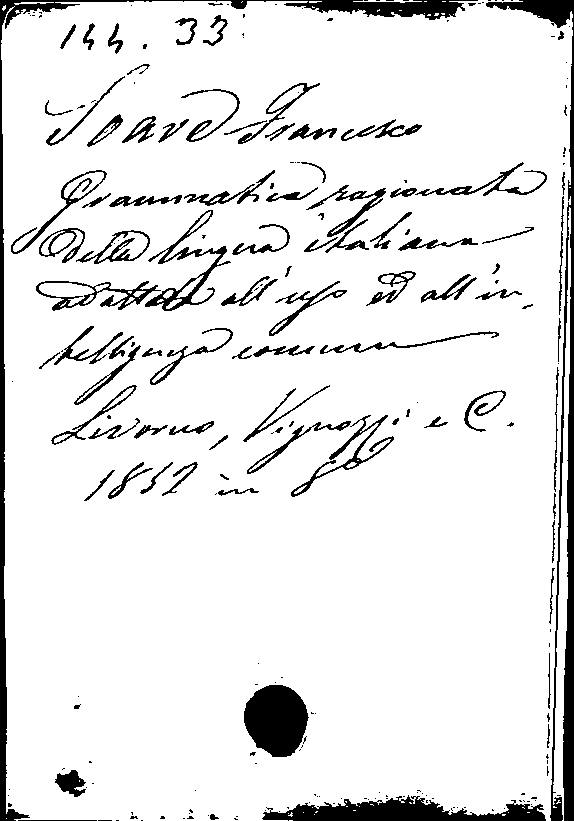 144. 33
Soave Francesco
Grammatica ragionata
della lingua italiana
adattata all'uso ed all'in,
telligenza comune
Livorno, Vignozzi e C.
1832 in 8º